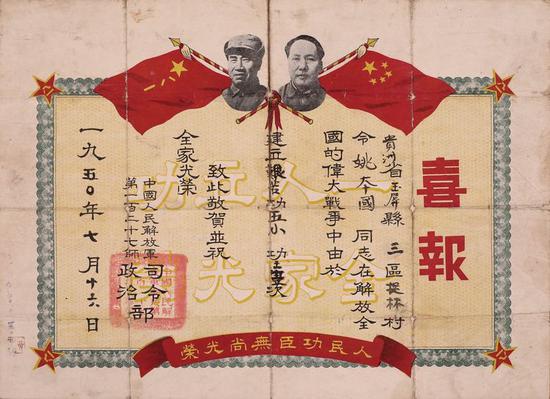 喜報
貴州省玉屏縣三區提林村
令姚本國同志在解放全
國的偉大戰爭中由於
建立艱苦功五小功壹次
致此敬賀並祝
全家光榮
中國人民解放軍
第一百二十七師
司令部
政治
一九五〇年七月十六日
一人立功
全家光榮
人民功臣無尚光榮